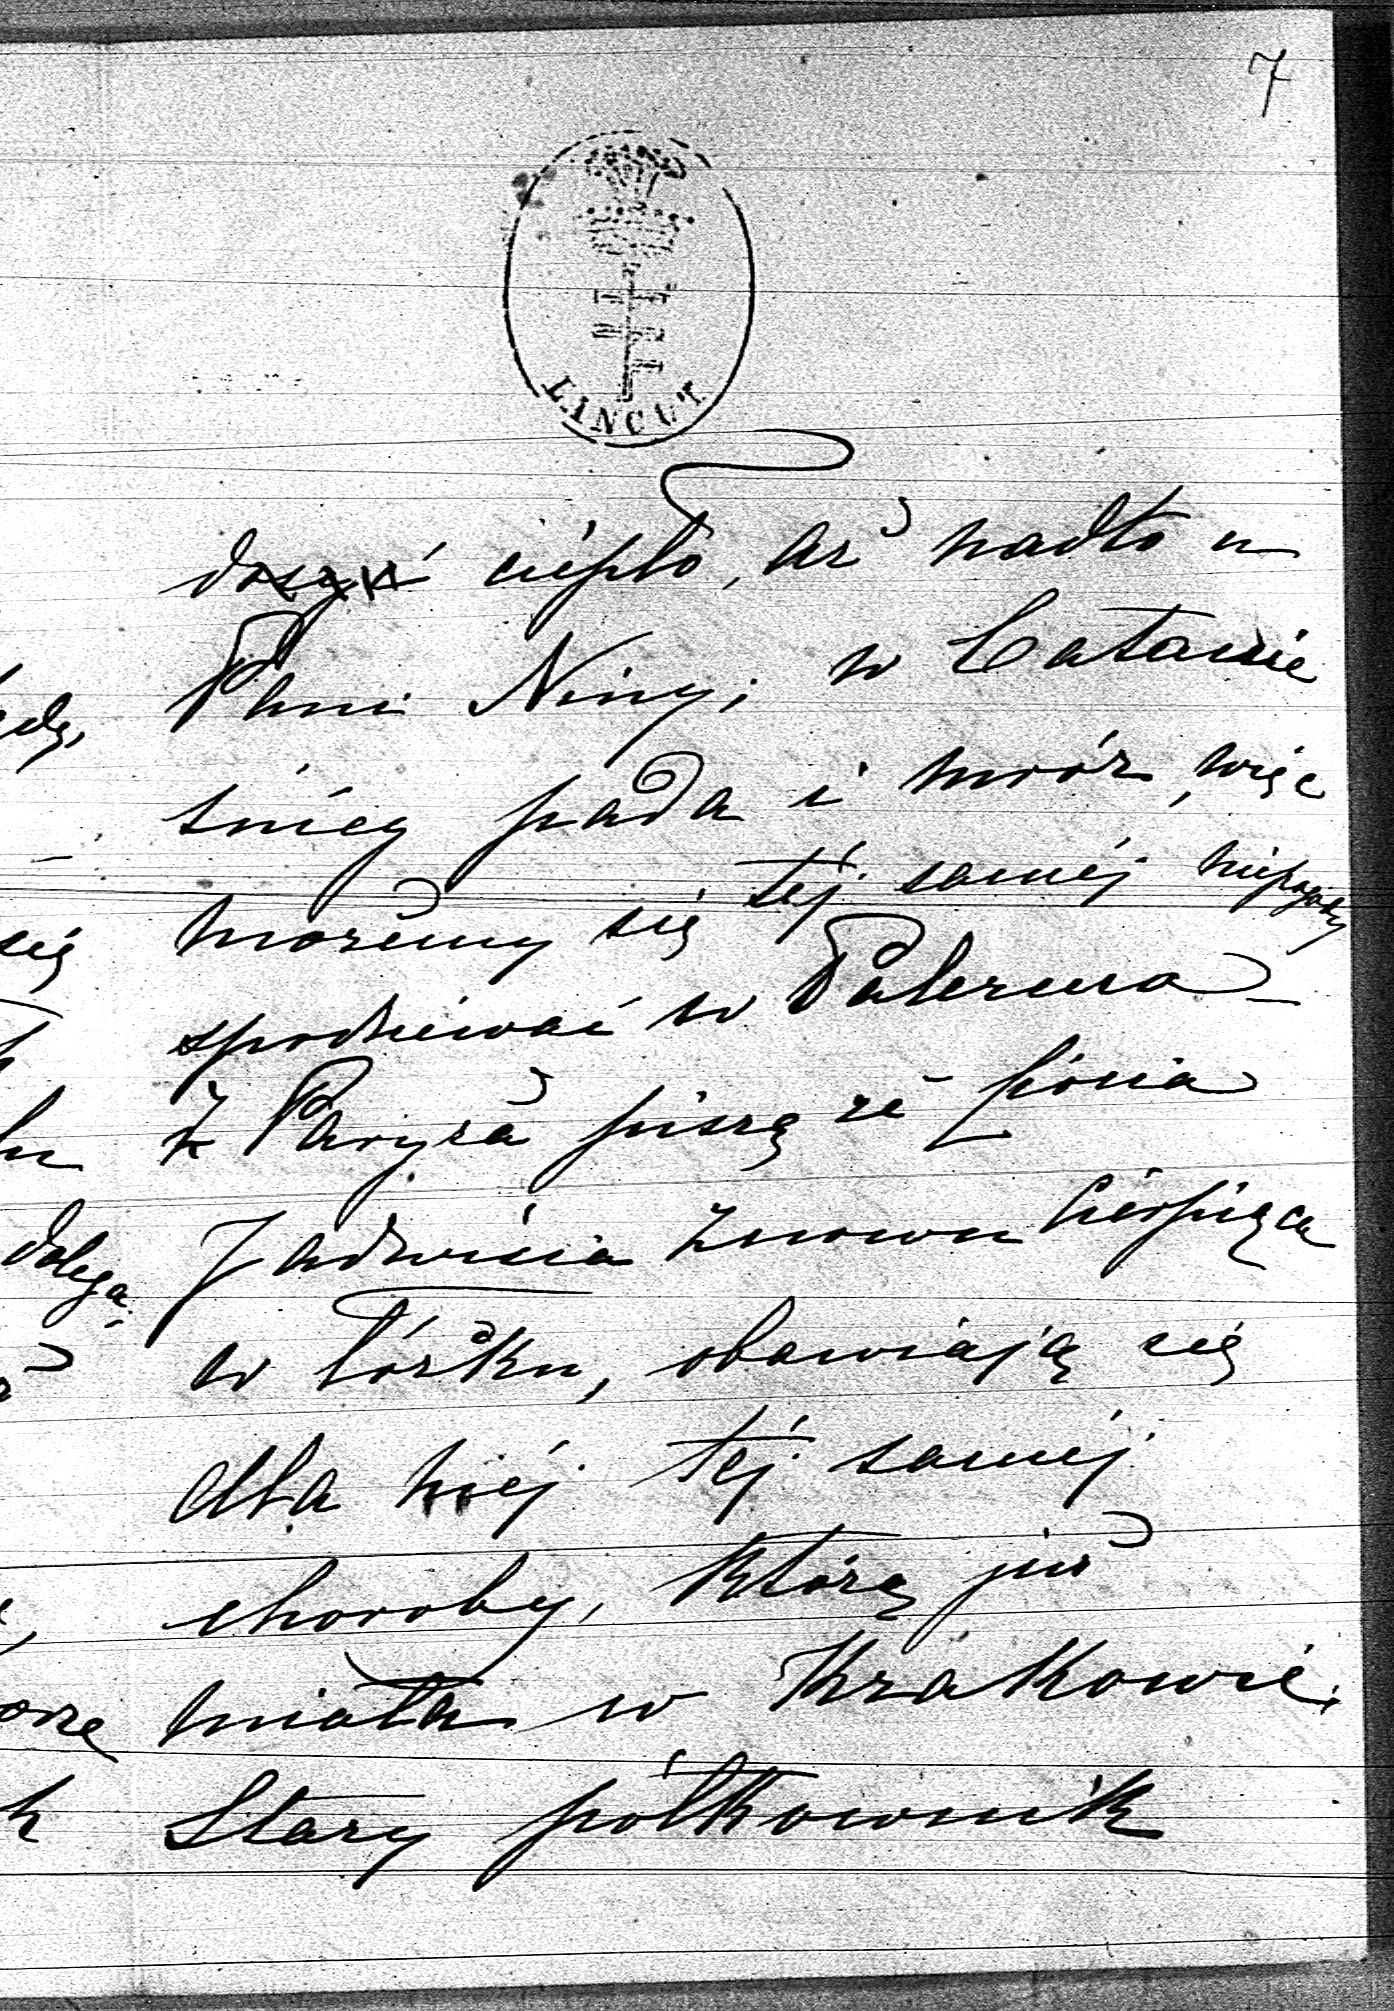 7
ŁAŃCUT
dosyć ciépło, aż nadto u
Pani Niny; w Catanie
śniég pada i mróz, więc
możemy się téj saméj niepogody
spodziewać w Palermo
Z Paryża piszą że
Jadwisia znowu cierpiąca
w łóżku, obawiają się
dla niéj téj saméj
choroby, którą już
miała w Krakowie.
Stary półkownik